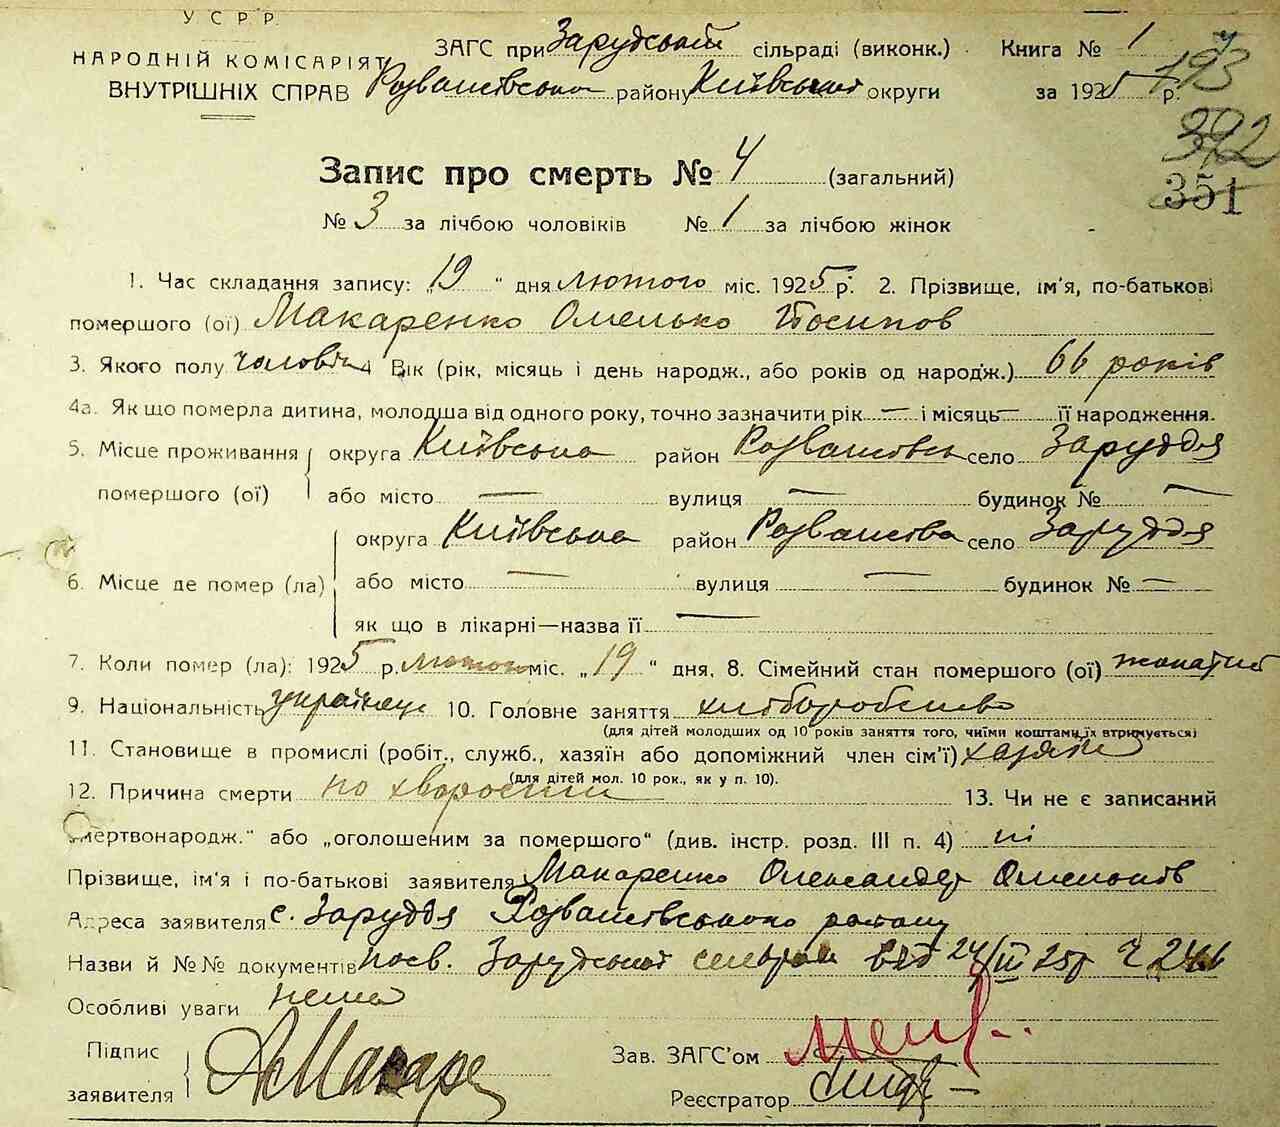 У С Р Р.
НАРОДНІЙ КОМІСАРІЯТ
ВНУТРІШНІХ СПРАВ
ЗАГС при Зарудській сільраді (виконк.)
Розваживсько району Київської округи
Книга № 1
за 1925 р.
193
392
351
Запис про смерть № 4 (загальний)
№ 3 за лічбою чоловіків № 1 за лічбою жінок
1. Час складання запису: „19“ дня лютого міс. 1925 р. 2. Прізвище, ім'я, по-батькові
помершого (ої) Макаренко Омелько Йосипов
3. Якого полу чоловіч 4 Вік (рік, місяць і день народж., або років од народж.) 66 років
4а. Як що померла дитина, молодша від одного року, точно зазначити рік — і місяць — її народження.
5. Місце проживання округа Київська район Розважівсь село Заруддя
помершого (ої) або місто — вулиця — будинок № —
округа Київська район Розважівсь село Заруддя
6. Місце де помер (ла) або місто — вулиця — будинок № —
як що в лікарні—назва її —
7. Коли помер (ла): 1925 р. лютого міс. „19“ дня, 8. Сімейний стан помершого (ої) жонатий
9. Національність українець 10. Головне заняття хліборобство
(для дітей молодших од 10 років заняття того, чиїми коштами їх втримується)
11. Становище в промислі (робіт., служб., хазяїн або допоміжний член сім'ї) хазяїн
(для дітей мол. 10 рок., як у п. 10).
12. Причина смерти по хворости 13. Чи не є записаний
„мертвонародж.“ або „оголошеним за помершого“ (див. інстр. розд. III п. 4) ні
Прізвище, ім'я і по-батькові заявителя Макаренко Олександер Омельков
Адреса заявителя с. Заруддя Розважівського району
Назви й №№ документів посв. Зарудської сельради від 24/III 25р Ч
Особливі уваги нема
Підпис
заявителя
Зав. ЗАГС'ом
Реєстратор